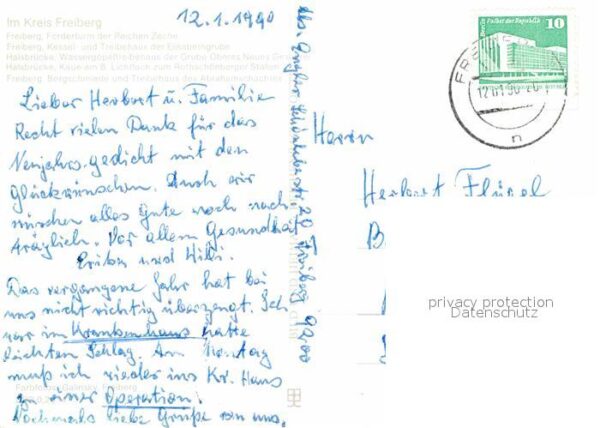 12.1.1990
Im Kreis Freiberg
Freiberg, Förderturm der Reichen Zeche
Freiberg, Kessel- und Treibehaus der Einsabgrube
Halsbrücke, Wassergöpeltreibehaus der Grube Oberes Neues Geschrei
Halsbrücke, Kaue am 8. Lichtloch zum Rothschönberger Stollen
Freiberg, Bergschmiede und Treibehaus des Abrahamschachtes
Lieber Herbert u. Familie
Recht vielen Dank für das
Neujahrsgedicht mit den
Glückwünschen. Auch wir
wünschen alles Gute noch nach-
träglich. Vor allem Gesundheit
Erika und Willi.
Das vergangene Jahr hat bei
uns nicht richtig überzeugt. Ich
war im Krankenhaus hatte
leichten Schlag. Am Montag
muß ich wieder ins Kr. Haus
zu einer Operation.
Nochmals liebe Grüße von uns.
Abs. 20 Freiberg 9200
Berlin, Palast der Republik
10
12.01.90-20
n
Herrn
Herbert
B
privacy protection
Datenschutz